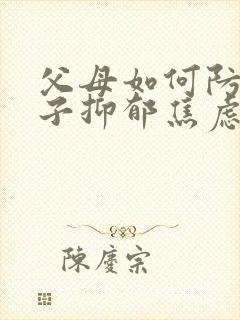 父母如何防
子抑郁焦虑
陳慶宗